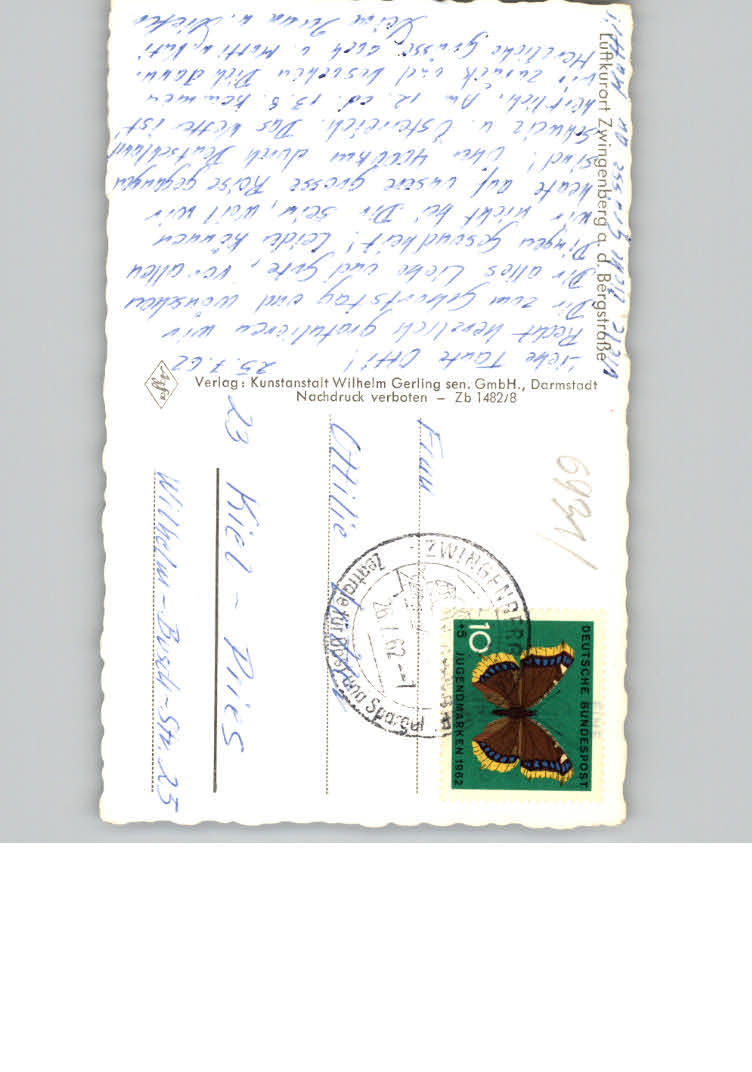 Luftkurort Zwingenberg a. d. Bergstraße
25.7.62
Liebe Tante Otti!
Recht herzlich gratulieren wir
Dir zum Geburtstag und wünschen
Dir alles Liebe und Gute, vor allen
Dingen Gesundheit! Leider können
wir nicht bei Dir sein, weil wir
heute auf unsere grosse Reise gegangen
sind! Uns 4000 km durch Deutschland
Schweiz u. Österreich. Das Wetter ist
herrlich. Am 12. od. 13. 8. kommen
wir zurück und besuchen Dich dann.
Herzliche Grüsse auch v. Mutti u. Vati
Deine
Verlag: Kunstanstalt Wilhelm Gerling sen. GmbH., Darmstadt
Nachdruck verboten – Zb 1482/8
Agfa
6931
DEUTSCHE BUNDESPOST
10
+5 JUGENDMARKEN 1962
ZWINGENBERG
26.7.62
Frau
Ottilie
23 Kiel - Pries
Wilhelm-Busch-Str. 25